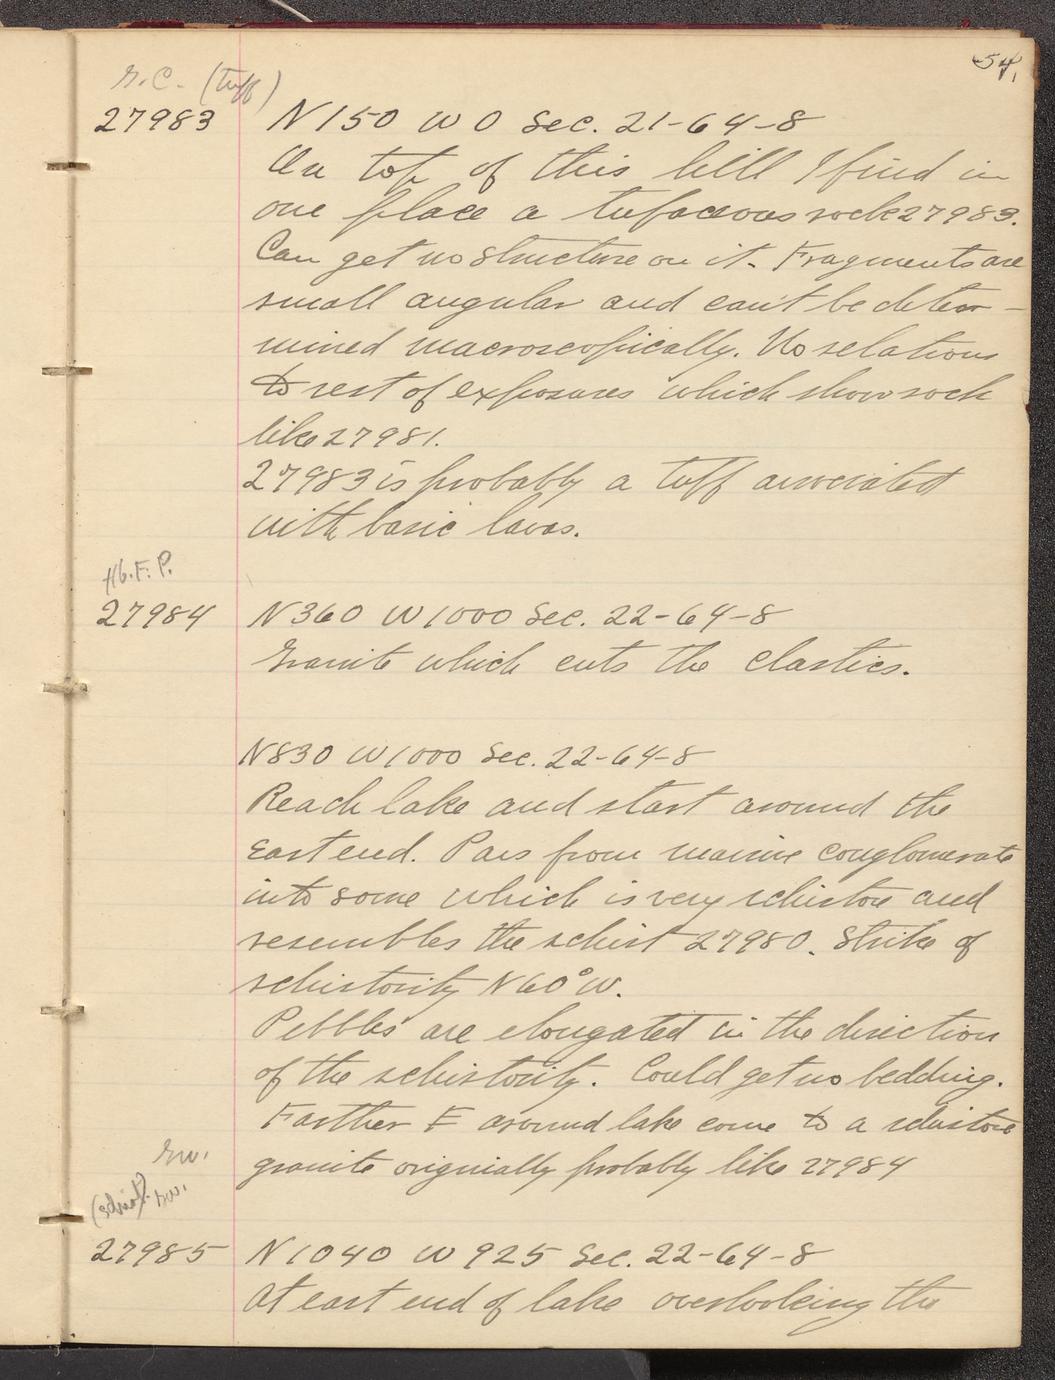 54.
G.C. (tuff)
27983 N150 W0 Sec. 21-64-8
On top of this hill I find in
one place a tufaceous rock 27983.
Can get no structure on it. Fragments are
small angular and can't be deter-
mined macroscopically. No relations
to rest of exposures which show rock
like 27981.
27983 is probably a tuff associated
with basic lavas.
Hb.F.P.
27984 N360 W1000 Sec. 22-64-8
Granite which cuts the clastics.
N830 W1000 Sec. 22-64-8
Reach lake and start around the
East end. Pass from massive conglomerate
into some which is very schistose and
resembles the schist 27980. Strike of
schistosity N60°W.
Pebbles are elongated in the direction
of the schistosity. Could get no bedding.
Farther E around lake come to a schistose
granite originally probably like 27984
Gw.
27985 N1040 W925 Sec. 22-64-8
At east end of lake overlooking the